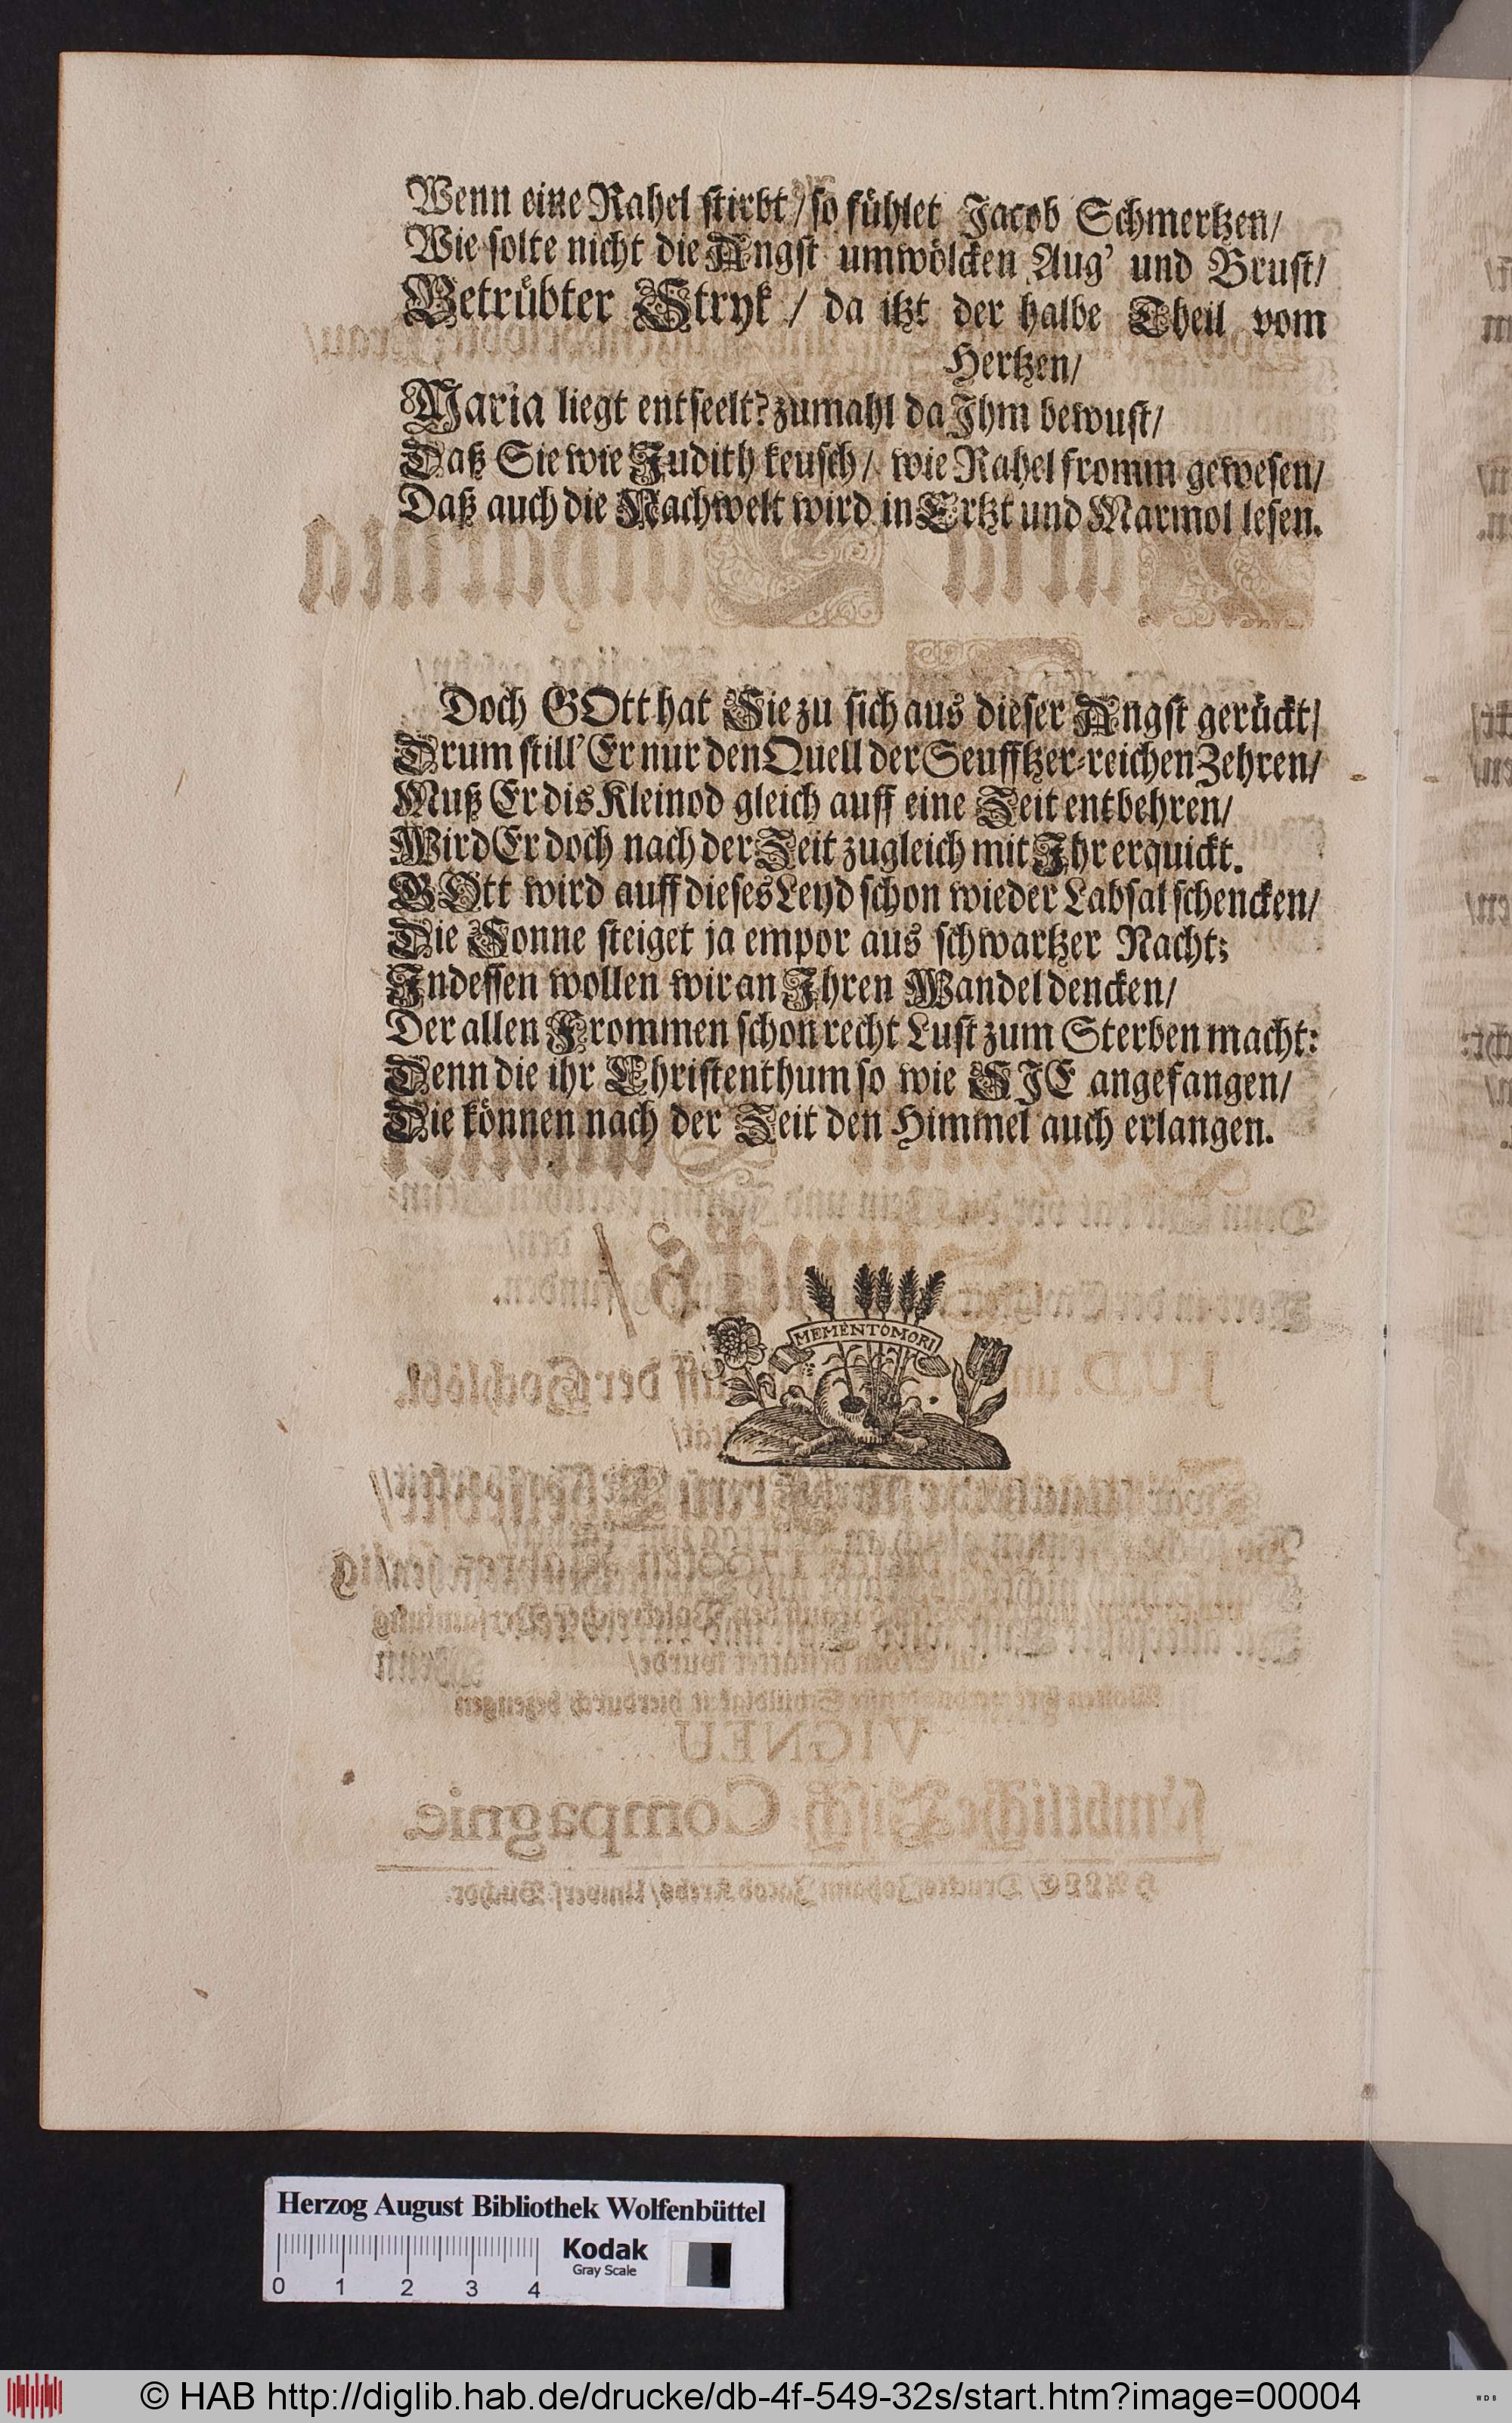 Wenn eine Rahel stirbt / so fühlet Jacob Schmertzen /
Wie solte nicht die Angst umwölcken Aug' und Brust /
Betrübter Stryk / da itzt der halbe Theil vom
Hertzen /
Maria liegt entseelt? zumahl da Ihm bewust /
Daß Sie wie Judith keusch / wie Rahel fromm gewesen /
Daß auch die Nachwelt wird in Ertzt und Marmol lesen.
Doch GOtt hat Sie zu sich aus dieser Angst gerückt /
Drum still' Er nur den Quell der Seufftzer-reichen Zehren /
Muß Er dis Kleinod gleich auff eine Zeit entbehren /
Wird Er doch nach der Zeit zugleich mit Ihr erquickt.
GOtt wird auff dieses Leyd schon wieder Labsal schencken /
Die Sonne steiget ja empor aus schwartzer Nacht;
Indessen wollen wir an Ihren Wandel dencken /
Der allen Frommen schon recht Lust zum Sterben macht:
Denn die ihr Christenthum so wie SIE angefangen /
Die können nach der Zeit den Himmel auch erlangen.
MEMENTO MORI
Herzog August Bibliothek Wolfenbüttel
0 1 2 3 4
Kodak
Gray Scale
© HAB http://diglib.hab.de/drucke/db-4f-549-32s/start.htm?image=00004
WDB